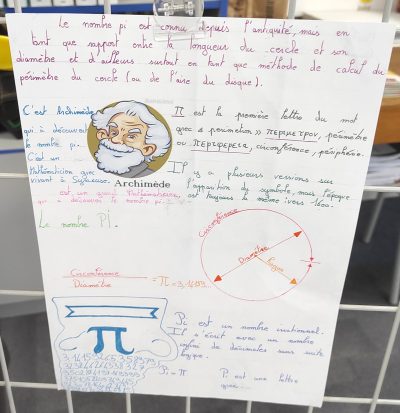 Le nombre pi est connu depuis l'antiquité, mais en
tant que rapport entre la longueur du cercle et son
diamètre et d'ailleurs surtout en tant que méthode de calcul du
périmètre du cercle (ou de l'aire du disque).
C'est Archimède
qui a découvert
le nombre pi.
C'est un
Mathématicien grec
vivant à Syracuse.
Archimède
est un grand Mathématicien
qui a découvert le nombre pi.
π est la première lettre du mot
grec « perimetron » περιμετρον, périmètre
ou περιφερεια, circonférence, périphérie.
Il y a plusieurs versions sur
l'apparition du symbole, mais l'époque
est toujours la même : vers 1600.
Le nombre Pi.
Circonférence
Diamètre
Rayon
Circonférence
Diamètre
= π = 3,14159...
π
Pi est un nombre irrationnel.
Il s'écrit avec un nombre
infini de décimales sans suite
logique.
Pi = π
Pi est une lettre
grecque.